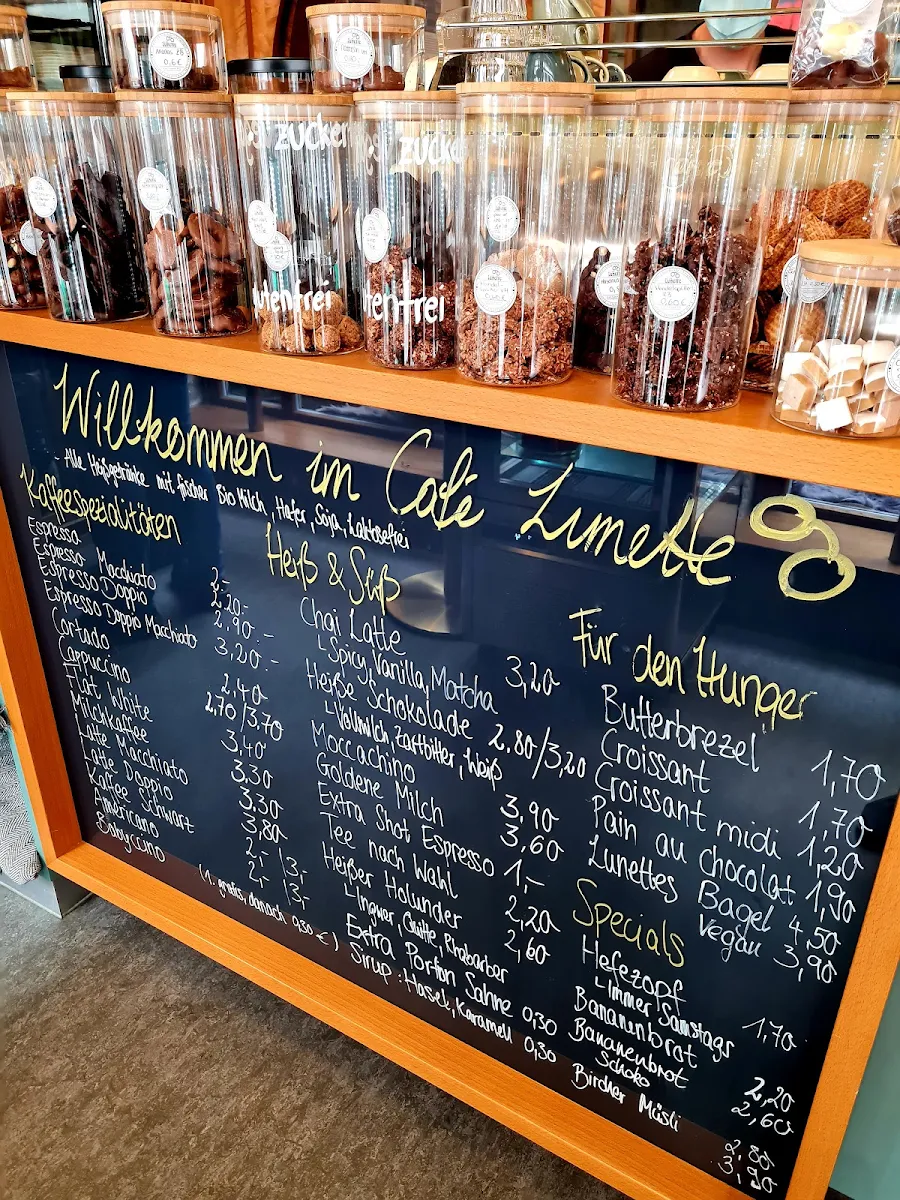 zucker
zucke
tenfrei
tenfrei
Willkommen im Café Lunette
- Alle Heißgetränke mit frischer Bio Milch, Hafer, Soja, Laktosefrei
Kaffeespezialitäten
Espresso 2,-
Espresso Macchiato 2,20.-
Espresso Doppio 2,90.-
Espresso Doppio Macchiato 3,20.-
Cortado 2,40
Cappuccino 2,70/3,70
Flat White 3,40
Milchkaffee 3,30
Latte Macchiato 3,30
Latte Doppio 3,80
Kaffee Schwarz 2,- | 3,-
Americano 2,- | 3,-
Babyccino (1. gratis, danach 0,50 €)
Heiß & Süß
Chai Latte 3,20
Spicy, Vanilla, Matcha
Heiße Schokolade 2,80/3,20
Vollmilch, Zartbitter, Weiß
Moccachino 3,90
Goldene Milch 3,60
Extra Shot Espresso 1,-
Tee nach Wahl 2,20
Heißer Holunder 2,60
Ingwer, Quitte, Rhabarber
Extra Portion Sahne 0,30
Sirup: Hasel, Karamell 0,30
Für den Hunger
Butterbrezel 1,70
Croissant 1,70
Croissant midi 1,20
Pain au chocolat 1,90
Lunettes Bagel 4,50
Vegan 3,90
Specials
Hefezopf 1,70
Immer Samstags
Bananenbrot 2,20
Bananenbrot 2,60
Schoko
Bircher Müsli 2,80
3,90